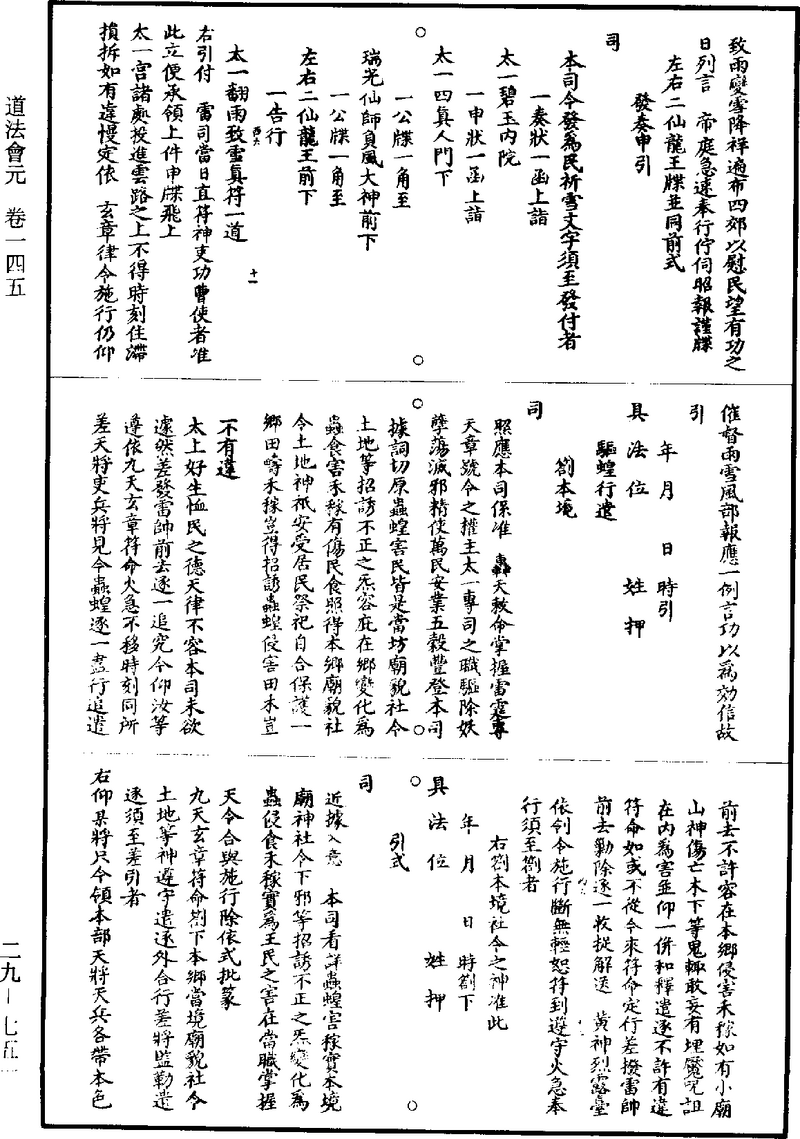 道法會元　卷一四五
致雨變雪降祥遍布四郊以慰民望有功之
日列言　帝庭急速奉行佇伺昭報謹牒
左右二仙龍王牒並同前式
發奏申引
司
本司今發為民祈雪文字須至發付者
一奏狀一函上詣
太一碧玉內院
一申狀一函上詣
太一四真人門下
一公牒一角至
瑞光仙師負風大神前下
一公牒一角至
左右二仙龍王前下
一告行
太一翻雨致雪真符一道
右引付　雷司當日直符神吏功曹使者准
此立便承領上件申牒飛上
太一宮諸處投進雲路之上不得時刻住滯
損拆如有違慢定依　玄章律令施行仍仰
十一
催督雨雪風部報應一例言功以為効信故
引
年　月　　日　時引
具　法　位　　　姓　押
驅蝗行遣
劄本境
司
照應本司係准　轟天赦命掌握雷霆專
天章號令之權主太一專司之職驅除妖
孽蕩滅邪精使萬民安業五穀豐登本司
據詞切原蟲蝗害民皆是當坊廟貌社令
土地等招誘不正之炁容庇在鄉變化為
蟲食害禾稼有傷民食照得本鄉廟貌社
令土地神祇安受居民祭祀自合保護一
鄉田疇禾稼豈得招誘蟲蝗侵害田本豈
不有違
太上好生恤民之德天律不容本司未欲
遽然差發雷帥前去逐一追究今仰汝等
遵依九天玄章符命火急不移時刻同所
差天將吏兵將見今蟲蝗逐一盡行追遣
前去不許容在本鄉侵害禾稼如有小廟
山神傷亡木下等鬼輒敢妄有埋魘呪詛
在內為害並仰一併和釋遣逐不許有違
符命如或不從今來符命定行差撥雷帥
前去勦除逐一收捉解送　黃神烈露臺
依列令施行斷無輕恕符到遵守火急奉
行須至劄者
右劄本境社令之神准此
年　月　　日　時劄下
具　法　位　　　姓　押
引式
司
近據入意　本司看詳蟲蝗害稼實本境
廟神社令下邪等招誘不正之炁變化為
蟲侵食禾稼實為王民之害在當職掌握
天令合與施行除依式批篆
九天玄章符命劄下本鄉當境廟貌社令
土地等神遵守遣逐外合行差將監勒遣
逐須至差引者
右仰某將尺今領本部天將天兵各帶本色
二九—七五一